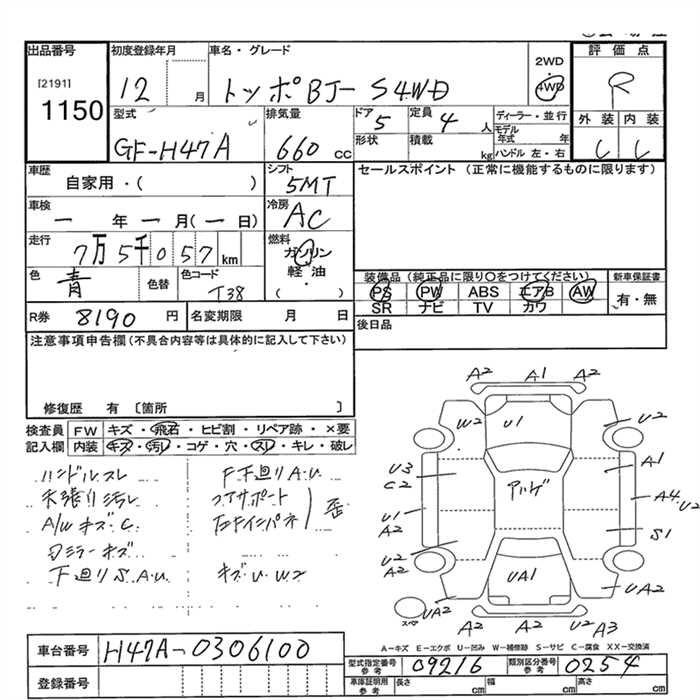 出品番号
[2191]
1150
初度登録年月
12 月
車名・グレード
トッポBJ- S 4WD
2WD
4WD
評価点
R
型式
GF-H47A
排気量
660 cc
ドア
5
形状
定員
4 人
積載
kg
ディーラー・並行
モデル年式 年
ハンドル 左・右
外装 内装
車歴
自家用・( )
シフト
5MT
セールスポイント (正常に機能するものに限ります)
車検
ー 年 ー 月(ー 日)
冷房
AC
走行
7万5千057 km
燃料
ガソリン
軽・油
・
( )
色
青
色替
色コード
T38
装備品 (純正品に限り〇をつけてください)
PS PW ABS エアB AW
SR ナビ TV カワ
新車保証書
有・無
後日品
R券 8190 円
名変期限 月 日
注意事項申告欄 (不具合内容等は具体的に記入して下さい)
修復歴 有 〔箇所 〕
検査員記入欄
FW キズ・飛石・ヒビ割・リペア跡・×要
内装 キズ・汚レ・コゲ・穴・スレ・キレ・破レ
ハンドルスレ
天張り汚レ
A/Wキズ・C
ミラーキズ
下廻りS.A.U
F下廻りA.U
コアサポート
右Fインパネ
歪
キズ・U・W2
A2 A1 A2
W2 U1 U2
U3
C2
アハゲ
A1
A4 U2
U1
A2
S1
U2
A2
UA1
UA2
UA2
スペア
A2 A2 U2 A3
A-キズ E-エクボ U-凹み W-補修跡 S-サビ C-腐食 XX-交換済
車台番号
H47A-0306100
登録番号
型式指定番号 参考
09216
類別区分番号 参考
0254
車庫証明用 参考
長さ cm
幅 cm
高さ cm